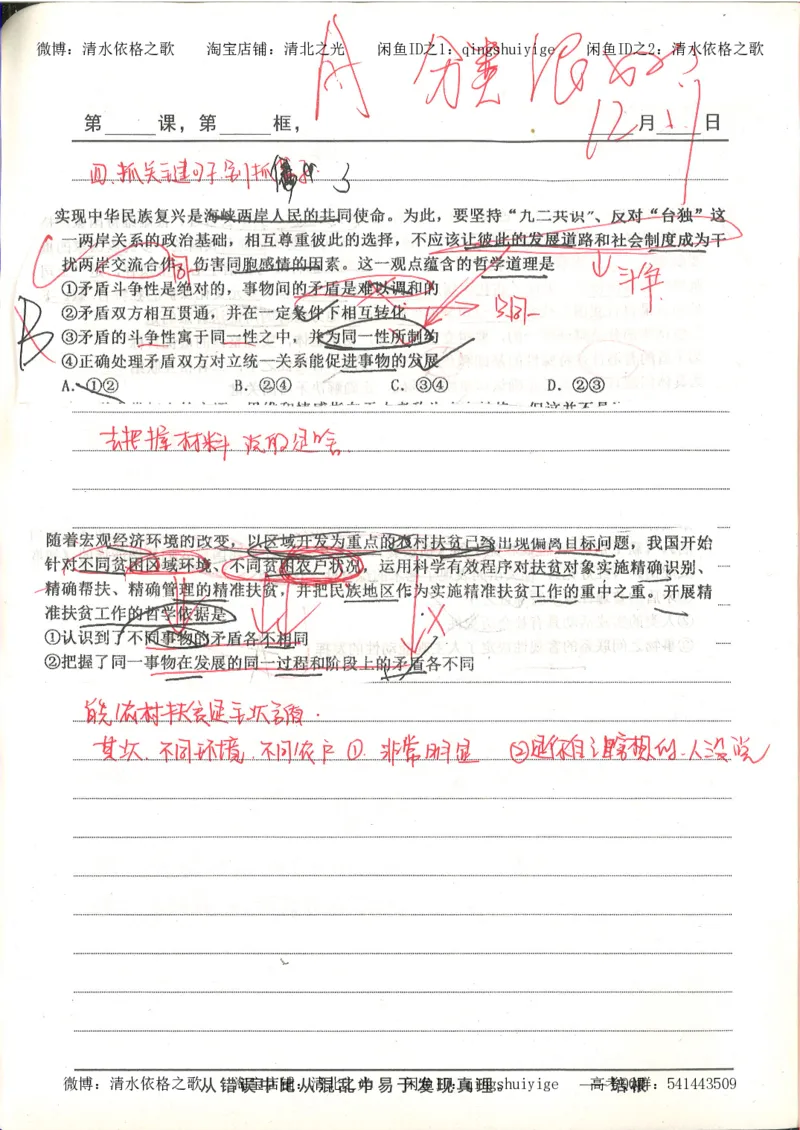 微博：清水依格之歌 淘宝店铺：清北之光 闲鱼ID之1：qingshuiyige 闲鱼ID之2：清水依格之歌
A 分类很好！
第____课，第____框，
12月____日
四、抓关键句子
实现中华民族复兴是海峡两岸人民的共同使命。为此，要坚持“九二共识”、反对“台独”这
一两岸关系的政治基础，相互尊重彼此的选择，不应该让彼此的发展道路和社会制度成为干
扰两岸交流合作、伤害同胞感情的因素。这一观点蕴含的哲学道理是
斗争
①矛盾斗争性是绝对的，事物间的矛盾是难以调和的
②矛盾双方相互贯通，并在一定条件下相互转化
同一
③矛盾的斗争性寓于同一性之中，并为同一性所制约
B
④正确处理矛盾双方对立统一关系能促进事物的发展
A．①② B．②④ C．③④ D．②③
去把握材料说的是啥
随着宏观经济环境的改变，以区域开发为重点的农村扶贫已经出现偏离目标问题，我国开始
针对不同贫困区域环境、不同贫困农户状况，运用科学有效程序对扶贫对象实施精确识别、
精确帮扶、精确管理的精准扶贫，并把民族地区作为实施精准扶贫工作的重中之重。开展精
准扶贫工作的哲学依据是
①认识到了不同事物的矛盾各不相同
②把握了同一事物在发展的同一过程和阶段上的矛盾各不同
首先，农村扶贫是主次
其次，不同环境，不同农户①非常明显 ②是你自己瞎想的，人没说
从错误中比从混乱中易于发现真理。 ——培根
微博：清水依格之歌 淘宝店铺：清北之光 闲鱼ID：qingshuiyige 高考QQ群：541443509